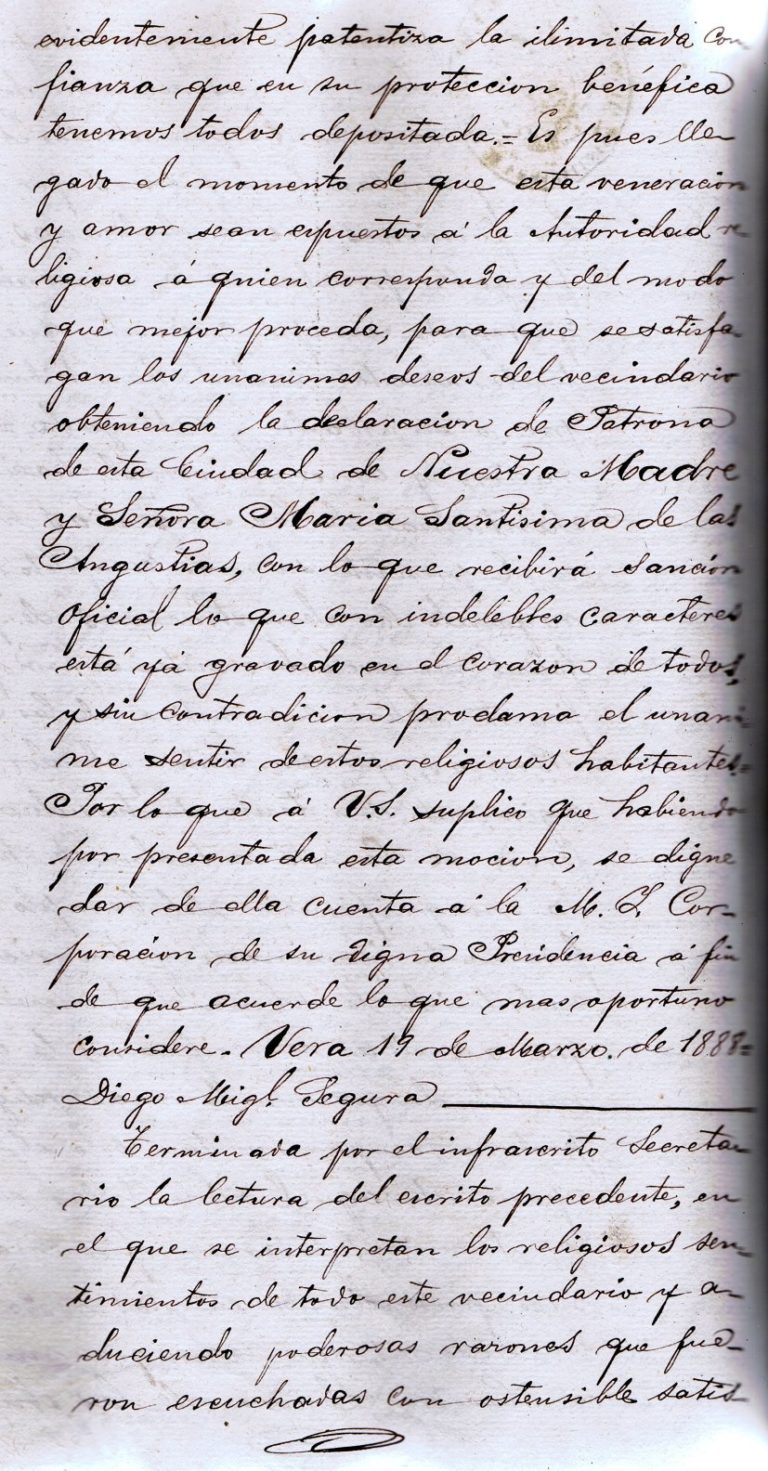 evidentemente patentiza la ilimitada con
fianza que en su proteccion benéfica
tenemos todos depositada.= Es pues lle
gado el momento de que esta veneracion
y amor sean espuestos á la Autoridad re
ligiosa á quien corresponda y del modo
que mejor proceda, para que se satisfa-
gan los unanimes deseos del vecindario
obteniendo la declaracion de Patrona
de esta Ciudad de Nuestra Madre
y Señora Maria Santisima de las
Angustias, con lo que recibirá sanción
oficial lo que con indelebles caracteres
está yá gravado en el corazon de todos,
y sin contradicion proclama el unani-
me sentir de estos religiosos habitantes.=
Por lo que á V.S. suplico que habiendo
por presentada esta mocion, se digne
dar de ella cuenta á la M. I. Cor-
poracion de su digna Presidencia á fin
de que acuerde lo que mas oportuno
considere. Vera 19 de Marzo. de 1888=
Diego Migl. Segura
Terminada por el infrascrito Secreta-
rio la lectura del escrito precedente, en
el que se interpretan los religiosos sen-
timientos de todo este vecindario y a-
duciendo poderosas razones que fue-
ron escuchadas con ostensible satis